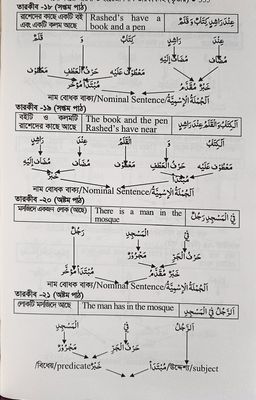 তারকীব -১৮ (সপ্তম পাঠ)
রাশেদের কাছে একটি বই এবং একটি কলম আছে
Rashed's have a book and a pen
عِنْدَ رَاشِدٍ كِتَابٌ وَ قَلَمٌ
عِنْدَ رَاشِدٍ كِتَابٌ وَ قَلَمٌ
مُضَاف مُضَاف إِلَيْهِ مَعْطُوْف عَلَيْهِ حَرْفُ الْعَطْفِ مَعْطُوْف
خَبَرٌ مُقَدَّمٌ مُبْتَدَأٌ مُؤَخَّرٌ
নাম বোধক বাক্য/Nominal Sentence/اَلْجُمْلَةُ الْاِسْمِيَّةُ
তারকীব -১৯ (সপ্তম পাঠ)
বইটি ও কলমটি রাশেদের কাছে আছে
The book and the pen Rashed's have near
اَلْكِتَابُ وَ الْقَلَمُ عِنْدَ رَاشِدٍ
اَلْكِتَابُ وَ الْقَلَمُ عِنْدَ رَاشِدٍ
مَعْطُوْف عَلَيْهِ حَرْفُ الْعَطْفِ مَعْطُوْف مُضَاف مُضَاف إِلَيْهِ
নাম বোধক বাক্য/Nominal Sentence/اَلْجُمْلَةُ الْاِسْمِيَّةُ
তারকীব -২০ (অষ্টম পাঠ)
মসজিদে একজন লোক (আছে)
There is a man in the mosque
فِي الْمَسْجِدِ رَجُلٌ
فِي الْمَسْجِدِ رَجُلٌ
حَرْفُ الْجَرِّ مَجْرُوْرٌ
خَبَرٌ مُقَدَّمٌ مُبْتَدَأٌ مُؤَخَّرٌ
নাম বোধক বাক্য/Nominal Sentence/اَلْجُمْلَةُ الْاِسْمِيَّةُ
তারকীব -২১ (অষ্টম পাঠ)
লোকটি মসজিদে আছে
The man has in the mosque
اَلرَّجُلُ فِي الْمَسْجِدِ
اَلرَّجُلُ فِي الْمَسْجِدِ
حَرْفُ الْجَرِّ مَجْرُوْرٌ
مُبْتَدَأٌ/উদ্দেশ্য/subject خَبَرٌ/বিধেয়/predicate